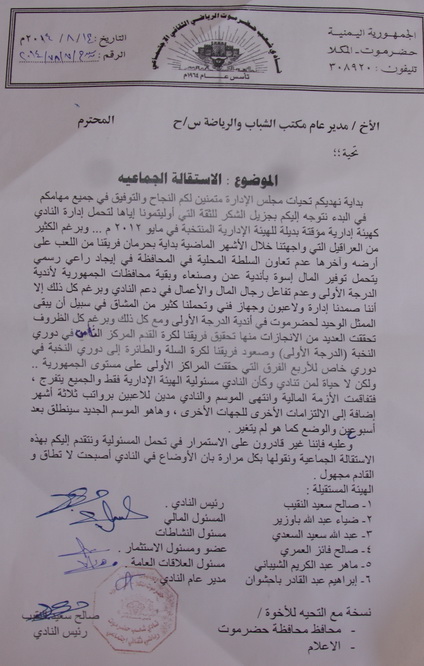 الجمهورية اليمنية
حضرموت - المكلا
تليفون : ٣٠٨٩٢٠
نادي شعب حضرموت الرياضي الثقافي الاجتماعي
تأسس عام ١٩٦٤م
التاريخ : ١٤ / ٨ / ٢٠١٤م
الرقم :
الأخ / مدير عام مكتب الشباب والرياضة س/ح المحترم
تحية ؛؛
الموضوع : الاستقالة الجماعيه
بداية نهديكم تحيات مجلس الإدارة متمنين لكم النجاح والتوفيق في جميع مهامكم
في البدء نتوجه إليكم بجزيل الشكر للثقة التي أوليتمونا إياها لتحمل إدارة النادي
كهيئة إدارية مؤقتة بديلة للهيئة الإدارية المنتخبة في مايو ٢٠١٢ م ... وبرغم الكثير
من العراقيل التي واجهتنا خلال الأشهر الماضية بداية بحرمان فريقنا من اللعب على
أرضه وآخرها عدم تعاون السلطة المحلية في المحافظة في إيجاد راعي رسمي
يتحمل توفير المال إسوة بأندية عدن وصنعاء وبقية محافظات الجمهورية لأندية
الدرجة الأولى وعدم تفاعل رجال المال والأعمال في دعم النادي وبرغم كل ذلك إلا
أننا صمدنا إدارة ولاعبون وجهاز فني وتحملنا كثير من المشاق في سبيل أن يبقى
الممثل الوحيد لحضرموت في أندية الدرجة الأولى ومع كل ذلك وبرغم كل الظروف
تحققت العديد من الانجازات منها تحقيق فريقنا لكرة القدم المركز في دوري
النخبة (الدرجة الأولى) وصعود فريقنا لكرة السلة والطائرة إلى دوري النخبة في
دوري خاص للأربع الفرق التي حققت المراكز الأولى على مستوى الجمهورية ..
ولكن لا حياة لمن تنادي وكأن النادي مسئولية الهيئة الإدارية فقط والجميع يتفرج ،
فتفاقمت الأزمة المالية وانتهى الموسم والنادي مدين للاعبين برواتب ثلاثة أشهر
إضافة إلى الالتزامات الأخرى للجهات الأخرى ، وهاهو الموسم الجديد سينطلق بعد
أسبوعين والوضع كما هو لم يتغير .
وعليه فإننا غير قادرون على الاستمرار في تحمل المسئولية ونتقدم إليكم بهذه
الاستقالة الجماعية ونقولها بكل مرارة بان الأوضاع في النادي أصبحت لا تطاق و
القادم مجهول .
الهيئة المستقيلة :
١- صالح سعيد النقيب رئيس النادي .
٢- ضياء عبد الله باوزير المسئول المالي
٣- عبد الله سعيد السعدي مسئول النشاطات
٤- صالح فائز العمري عضو ومسئول الاستثمار .
٥- ماهر عبد الكريم الشيباني مسئول العلاقات العامة .
٦- إبراهيم عبد القادر باحشوان مدير عام النادي
صالح سعيد النقيب
رئيس النادي
نسخة مع التحيه للأخوة /
- محافظ محافظة حضرموت
- الاعلام